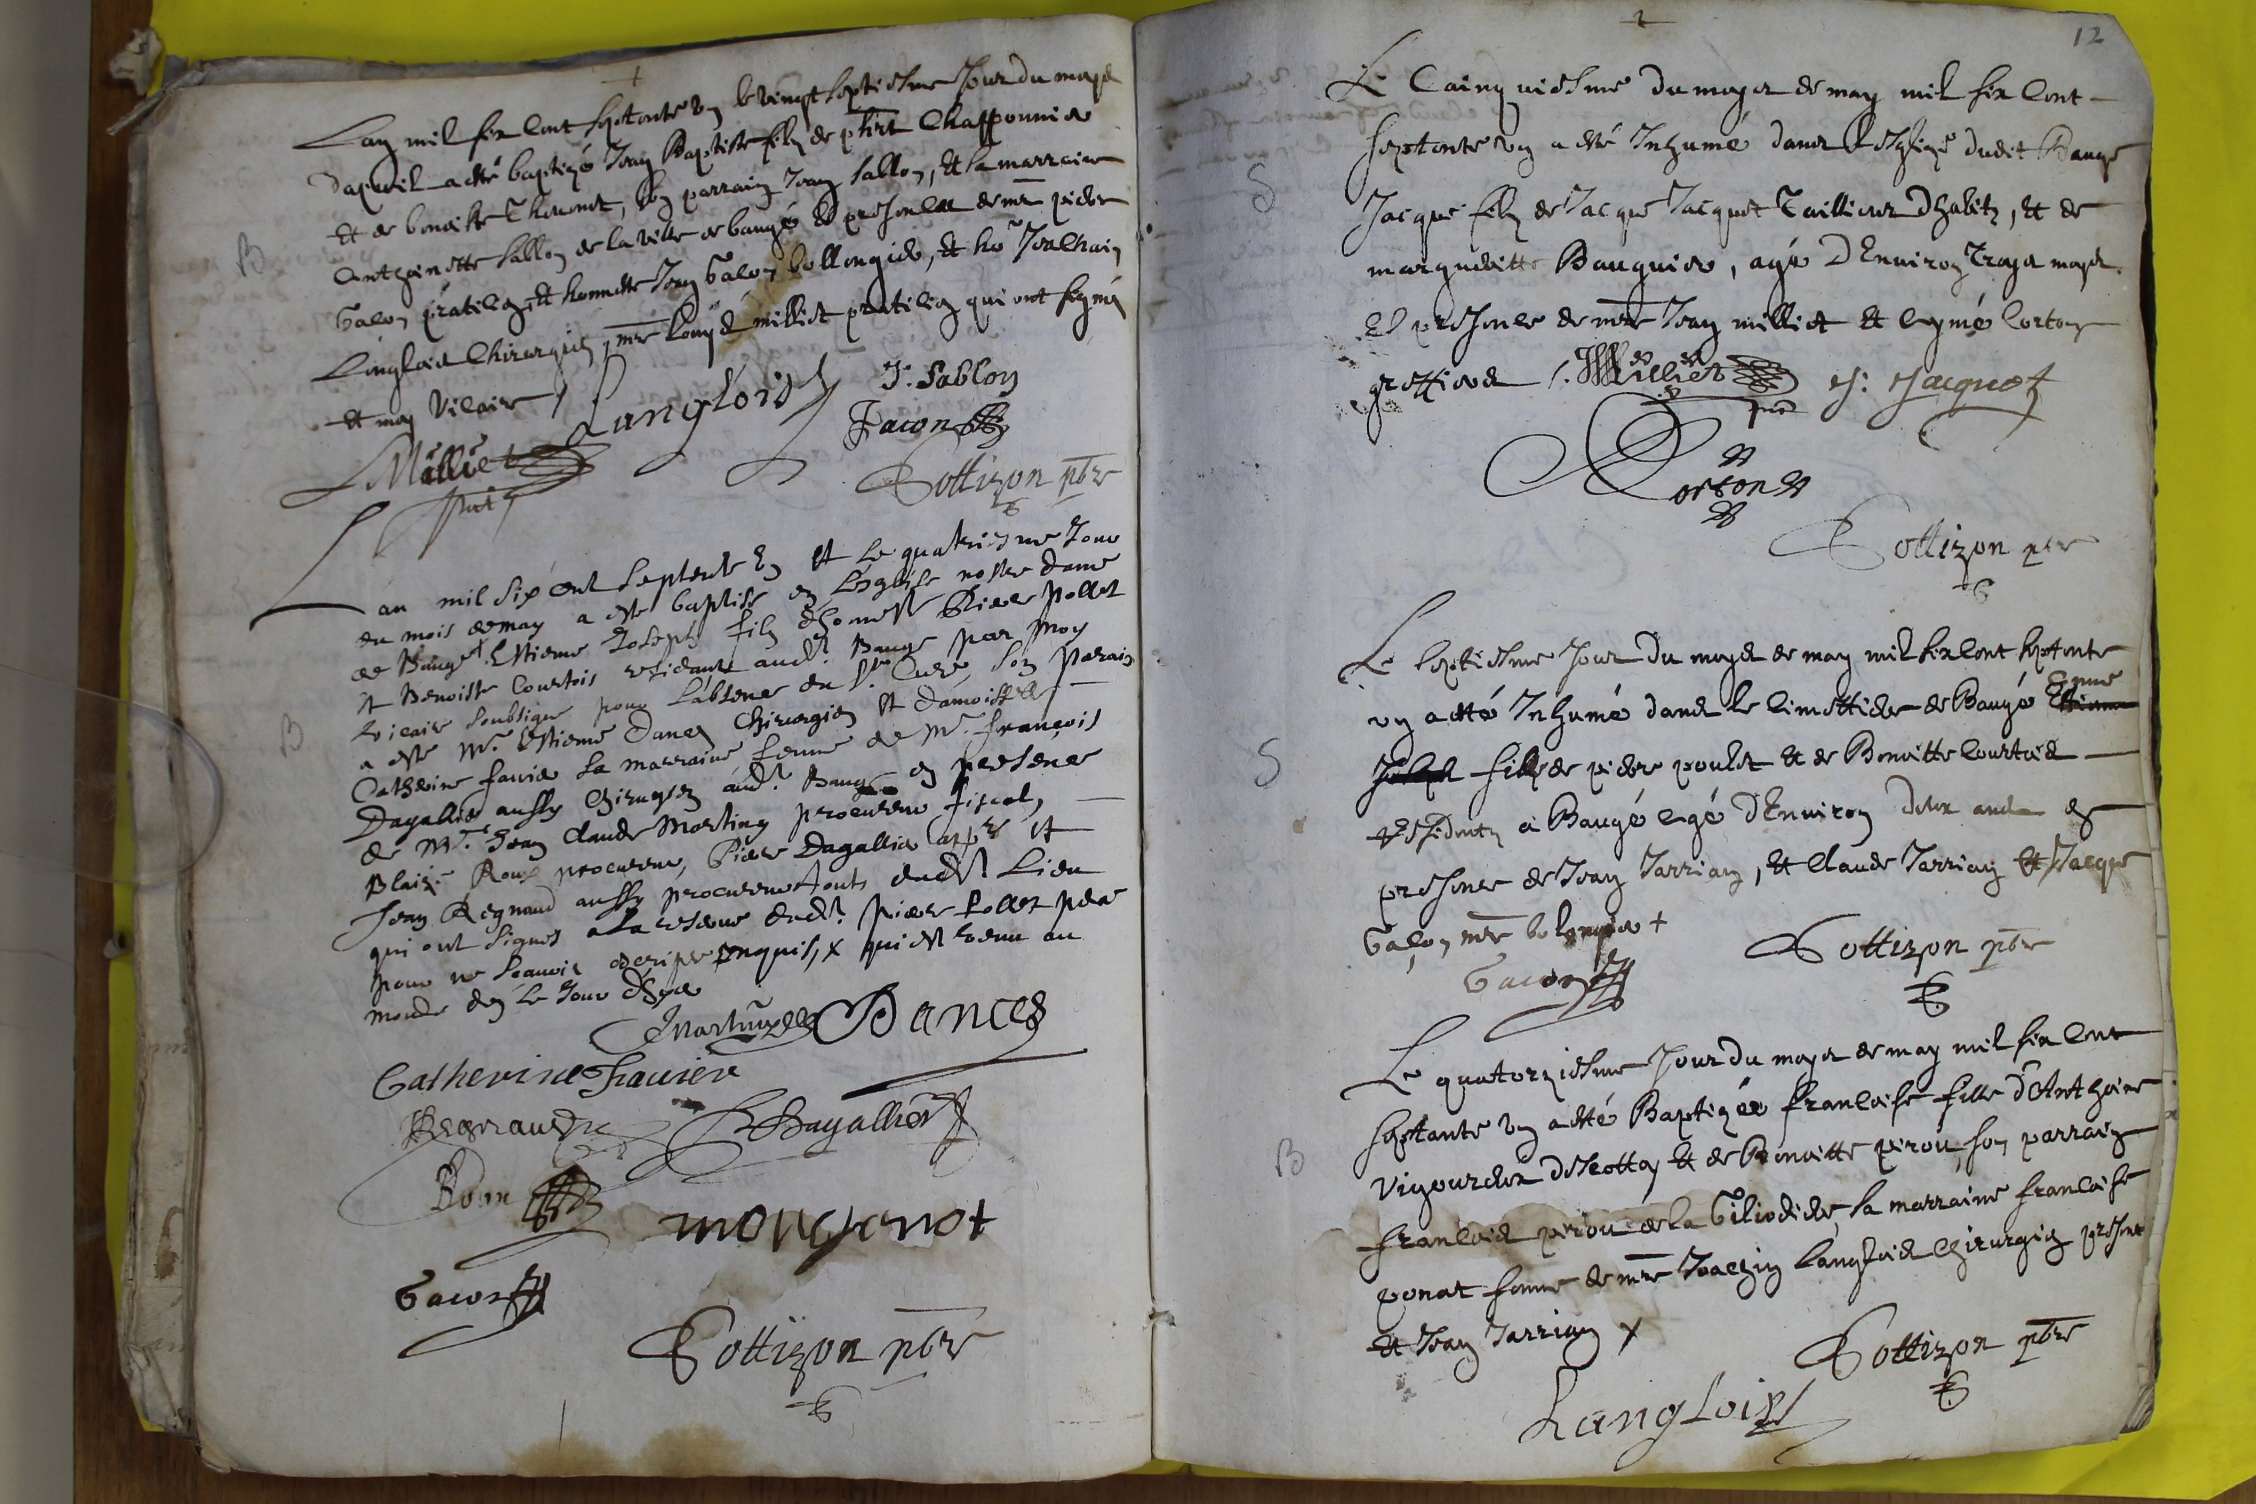 Lan mil six cent septante un le vingt septiesme Jour du moys
dapvril a esté baptizé Jean Baptiste filz de phirt Chapponnier
et de benoiste Thevenet, son parrain Jean Sablon, et la marraine
Anthoinette Sablon de la ville de baugé es presences de mre pierre
Gacon praticien, et honneste Jean Gacon bollongier, et ho Joachain
Langlois Chirurgien, mre Louys milliet praticien qui ont signé
et moy vicaire
Langlois
J. Sablon
Gacon
Milliet
Gottizon pbre
Lan mil six cent septente En et le quatriesme Jour
du mois de may a este baptise en Lesglise nostre dame
de Baugé Estienne Joseph filz dhoneste Pierre Pollet
et Benoiste Courtois residants aud. Baugé par moy
Vicaire soubsigne pour Labsence du Sr Curé, son parain
a este Mr. Estienne Dancy Chirurgien et damoiselle
Catherine favier sa marraine femme de Mr. françois
Dagallier aussy Chirurgien aud. Baugé en presence
de Mr. Jean Claude Martiny procureur fiscal,
Blaize Roux procureur, Pierre Dagallier et
Jean Regnaud aussy procureur touts dud. Lieu
qui ont signés a la reserve dud. pierre Pollet pere
pour ne scavoir escripre enquis, x qui est venu au
monde des le Jour dhyer
Martiny
Dancy
Catherine Favier
Regnaud
Dagallier
Roux
monchanot
Gacon
Gottizon pbre
12
Le Cainquiesme du moys de may mil six cent
septante un a esté Inhumé dans l'esglise dudit Baugé
Jacque filz de Jacque Jacquet Tailleur d'habitz, et de
margueritte Bauguier, agé d'Environ Troys moys.
Es presence de mre Jean milliet et Eymé Corton
greffiers
Milliet
J. Jacquet
Corton
Gottizon pbre
Le septiesme Jour du moys de may mil six cent septante
un a esté Inhumé dans le cimettiere de Baugé
fille de pierre poulet et de Benoitte Courtois
residents a Baugé agé d'Environ deux ans es
presence de Jean Jarriany, et Claude Jarriany et Jacque
Gacon, mre bolongier +
Gacon
Gottizon pbre
Le quatorziesme Jour du moys de may mil six cent
septante un a esté Baptizée francoise fille d'Anthoine
Vigourdon et de Benoitte perou son parrain
francois perou de la sa marraine francoise
ponat femme de mre Joachin Langlois Chirurgien present
et Jean Jarriany x
Gottizon pbre
Langlois